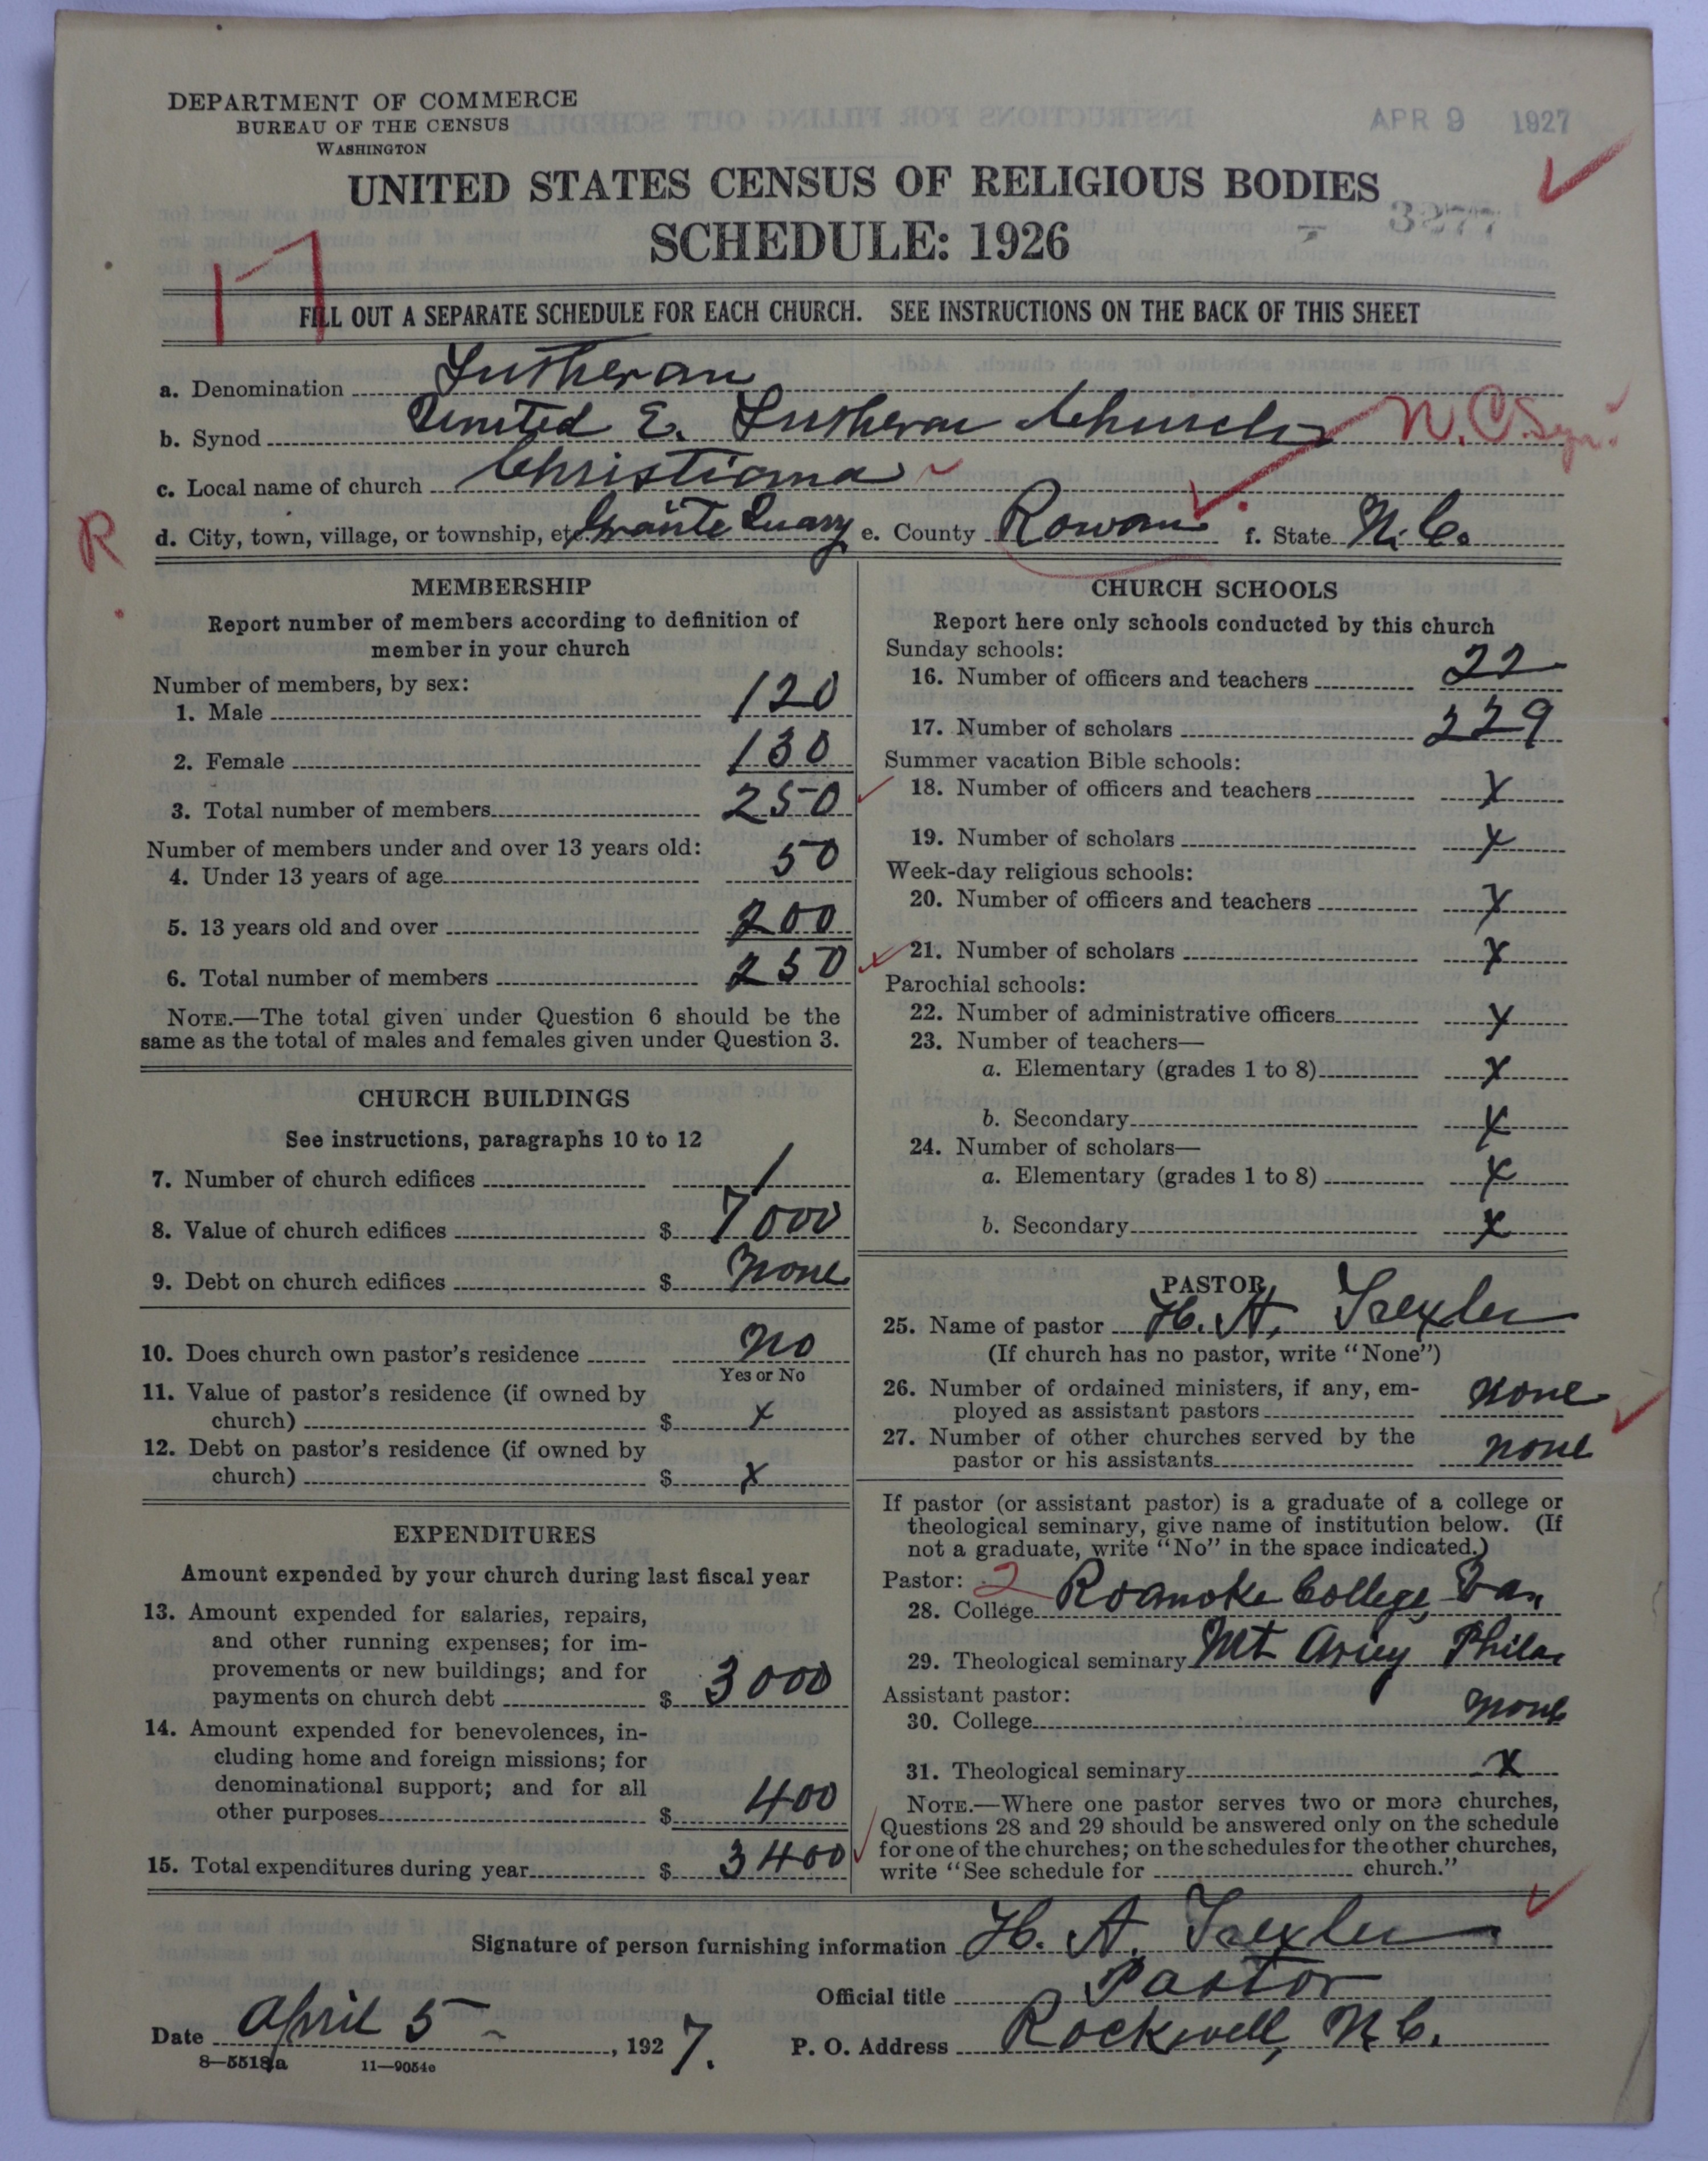 DEPARTMENT OF COMMERCE
BUREAU OF THE CENSUS
WASHINGTON
APR 9 1927
UNITED STATES CENSUS OF RELIGIOUS BODIES
3277
SCHEDULE: 1926
17
FILL OUT A SEPARATE SCHEDULE FOR EACH CHURCH. SEE INSTRUCTIONS ON THE BACK OF THIS SHEET
a. Denomination Lutheran
b. Synod United E. Lutheran Church N.C. Syn.
c. Local name of church Christiana
R
d. City, town, village, or township, etc. Granite Quary e. County Rowan f. State N. C.
MEMBERSHIP
Report number of members according to definition of
member in your church
Number of members, by sex:
1. Male 120
2. Female 130
3. Total number of members 250
Number of members under and over 13 years old:
4. Under 13 years of age 50
5. 13 years old and over 200
6. Total number of members 250
NOTE.—The total given under Question 6 should be the
same as the total of males and females given under Question 3.
CHURCH BUILDINGS
See instructions, paragraphs 10 to 12
7. Number of church edifices 1
8. Value of church edifices $ 7000
9. Debt on church edifices $ none
10. Does church own pastor's residence no
Yes or No
11. Value of pastor's residence (if owned by
church) $ x
12. Debt on pastor's residence (if owned by
church) $ x
EXPENDITURES
Amount expended by your church during last fiscal year
13. Amount expended for salaries, repairs,
and other running expenses; for im-
provements or new buildings; and for
payments on church debt $ 3000
14. Amount expended for benevolences, in-
cluding home and foreign missions; for
denominational support; and for all
other purposes $ 400
15. Total expenditures during year $ 3400
CHURCH SCHOOLS
Report here only schools conducted by this church
Sunday schools:
16. Number of officers and teachers 22
17. Number of scholars 229
Summer vacation Bible schools:
18. Number of officers and teachers x
19. Number of scholars x
Week-day religious schools:
20. Number of officers and teachers x
21. Number of scholars x
Parochial schools:
22. Number of administrative officers x
23. Number of teachers—
a. Elementary (grades 1 to 8) x
b. Secondary x
24. Number of scholars—
a. Elementary (grades 1 to 8) x
b. Secondary x
PASTOR
25. Name of pastor H. A. Trexler
(If church has no pastor, write "None")
26. Number of ordained ministers, if any, em-
ployed as assistant pastors none
27. Number of other churches served by the
pastor or his assistants none
If pastor (or assistant pastor) is a graduate of a college or
theological seminary, give name of institution below. (If
not a graduate, write "No" in the space indicated.)
Pastor: 2
28. College Roanoke College,
29. Theological seminary Mt Airey Phila
Assistant pastor:
30. College none
31. Theological seminary x
NOTE.—Where one pastor serves two or more churches,
Questions 28 and 29 should be answered only on the schedule
for one of the churches; on the schedules for the other churches,
write "See schedule for church."
Signature of person furnishing information H. A. Trexler
Official title Pastor
Date April 5 , 1927. P. O. Address Rockwell, N. C.
8—5518a 11—9054c